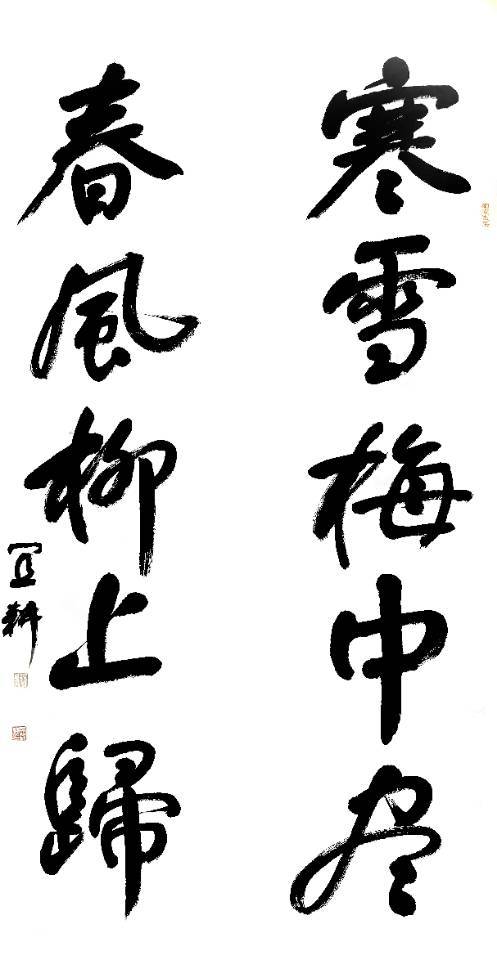 寒雪梅中尽
春風柳上歸
宜耕